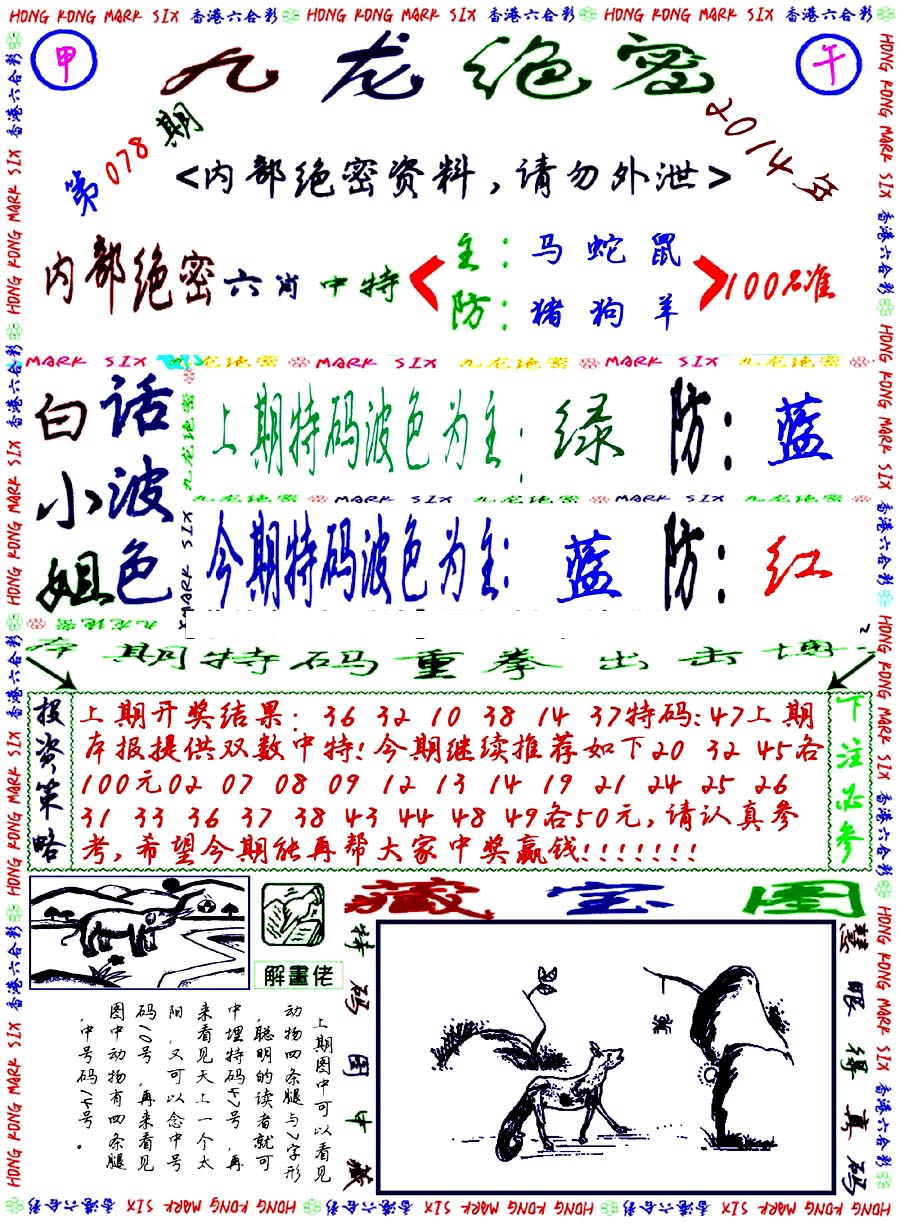 HONG KONG MARK SIX 香港六合彩 HONG KONG MARK SIX 香港六合彩 HONG KONG MARK SIX 香港六合彩
甲 九龙绝密 午
第078期 2014年
<内部绝密资料,请勿外泄>
内部绝密六肖中特
主:马蛇鼠
防:猪狗羊
100%准
MARK SIX 九龙绝密 MARK SIX 九龙绝密 MARK SIX 九龙绝密
白小姐
话波色
上期特码波色为主:绿 防:蓝
九龙绝密 MARK SIX 九龙绝密 MARK SIX 九龙绝密
今期特码波色为主:蓝 防:红
九龙绝密
本期特码重拳出击博
投资策略
上期开奖结果:36 32 10 38 14 37特码:47上期
本报提供双数中特!今期继续推荐如下20 32 45各
100元02 07 08 09 12 13 14 19 21 24 25 26
31 33 36 37 38 43 44 48 49各50元,请认真参
考,希望今期能再帮大家中奖赢钱!!!!!!!
下注必参
藏宝图
解畫佬
上期图中可以看见
动物四条腿与7字形
,聪明的读者就可
中埋特码47号,再
来看见天上一个太
阳,又可以念中号
码10号,再来看见
图中动物有四条腿
,中号码14号。
特码图中藏
慧眼得真码
HONG KONG MARK SIX 香港六合彩 HONG KONG MARK SIX 香港六合彩 HONG KONG MARK SIX 香港六合彩